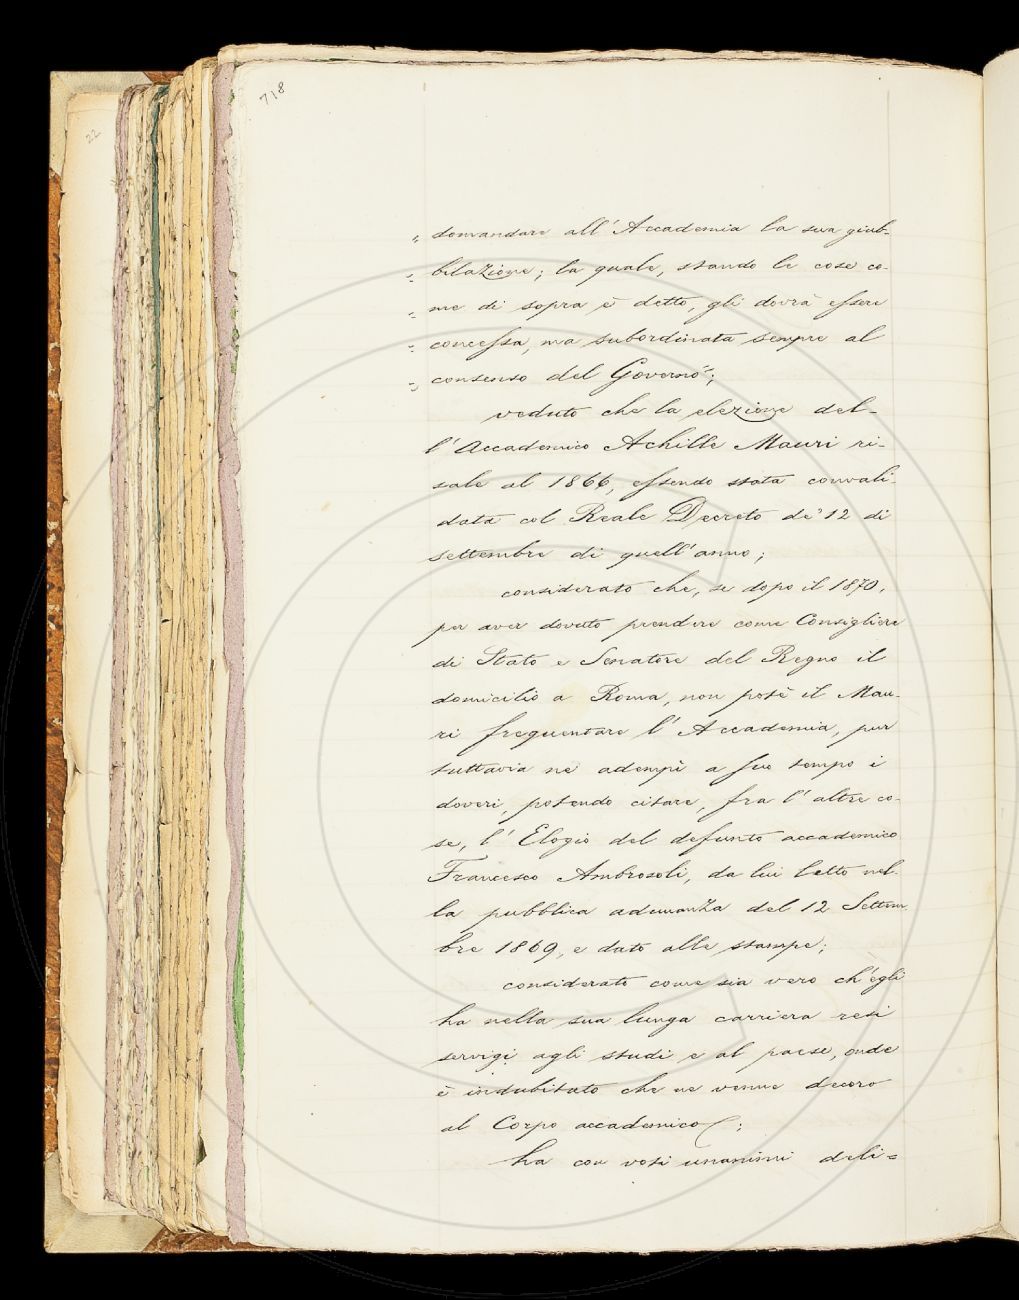 718
22
„ domandare all'Accademia la sua giub-
„ bilazione; la quale, stando le cose co-
„ me di sopra è detto, gli dovrà essere
„ concessa, ma subordinata sempre al
„ consenso del Governo";
veduto che la elezione del-
l'Accademico Achille Mauri ri-
sale al 1866, essendo stata convali-
data col Reale Decreto de' 12 di
settembre di quell'anno;
considerato che, se dopo il 1870,
per aver dovuto prendere come Consigliere
di Stato e Senatore del Regno il
domicilio a Roma, non potè il Mau-
ri frequentare l'Accademia, pur
tuttavia ne adempì a suo tempo i
doveri, potendo citare, fra l'altre co-
se, l'Elogio del defunto accademico
Francesco Ambrosoli, da lui letto nel-
la pubblica adunanza del 12 Settem-
bre 1869, e dato alle stampe;
considerato come sia vero ch'egli
ha nella sua lunga carriera resi
servigi agli studi e al paese, onde
è indubitato che ne venne decoro
al Corpo accademico;
ha con voti unanimi deli=